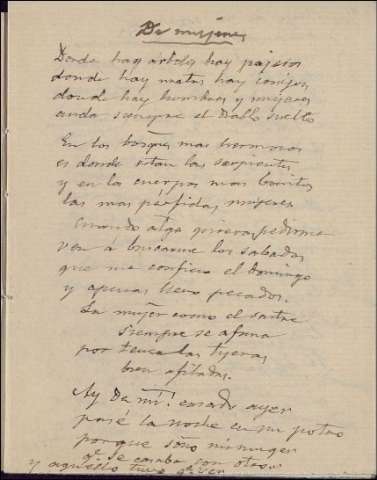 De mujeres
Donde hay árboles hay pajaros
donde hay matas hay conejos
donde hay hombres y mujeres
anda siempre el Diablo suelto
En los bosques mas hermosos
es donde estan las serpientes
y en los cuerpos mas bonitos
las mas pérfidas mujeres
Cuando algo quieras pedirme
ven á buscarme los sabados
que me confieso el domingo
y apenas llevo pecados.
La mujer como el sastre
siempre se afana
por tener las tijeras
bien afiladas.
Ay De mi! casado ayer
pasé la noche en un potro
porque soñó mi muger
qe. se casaba con otro
y aquello tuve qe. ver